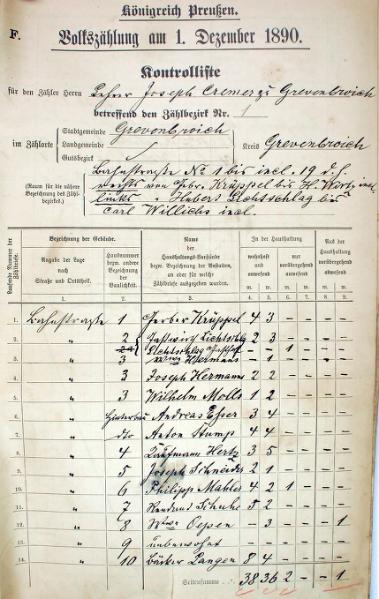 Königreich Preußen.
F.
Volkszählung am 1. Dezember 1890.
Kontrolliste
für den Zähler Herrn Lehrer Joseph Cremer zu Grevenbroich
betreffend den Zählbezirk Nr. 1
im Zählorte
Stadtgemeinde Grevenbroich
Landgemeinde
Gutsbezirk
Kreis Grevenbroich
(Raum für die nähere Bezeichnung des Zählbezirks.)
Bahnstraße No 1 bis incl. 19 d.h.
rechts von Gebr. Krüppel bis H. Wirtz incl
links " Hubert Lichtschlag bis
Carl Willichs incl.
Laufende Nummer der Zählbriefe.
Bezeichnung der Gebäude.
Angabe der Lage nach Straße und Ortsteil.
Hausnummer bezw. andere Bezeichnung der Baulichkeit.
Name der Haushaltungs-Vorstände bezw. Bezeichnung der Anstalten, an oder für welche Zählbriefe ausgegeben wurden.
In der Haushaltung
wohnhaft und anwesend
nur vorübergehend anwesend
Aus der Haushaltung vorübergehend abwesend
m. w. m. w. m. w.
1. 2. 3. 4. 5. 6. 7. 8. 9.
1. Bahnstraße 1 Gerber Krüppel 4 3 - - - -
2. " 2 Gastwirth Lichtschlg 2 3 - - - -
Lichtschlag Gasthof - - 1 - - -
3. " 3 Wwe Hermans - 1 - - - -
4. " 3 Joseph Hermans 2 2 - - - -
5. " 3 Wilhelm Molls 1 2 - - - -
6. " Hinterbau Andreas Esser 3 4 - - - -
7. " dto Anton Stump 4 4 - - - -
8. " 4 Kaufmann Hertz 3 5 - - - -
9. " 5 Joseph Schneider 2 1 - - - -
10. " 6 Philipp Mahler 4 2 1 - - -
11. " 7 5 2 - - - -
12. " 8 Wwe Oepen - 3 - - - 1
13. " 9 unbewohnt - - - - - -
14. " 10 Bäcker Langen 8 4 - - - -
Seitensumme 38 36 2 - - 1